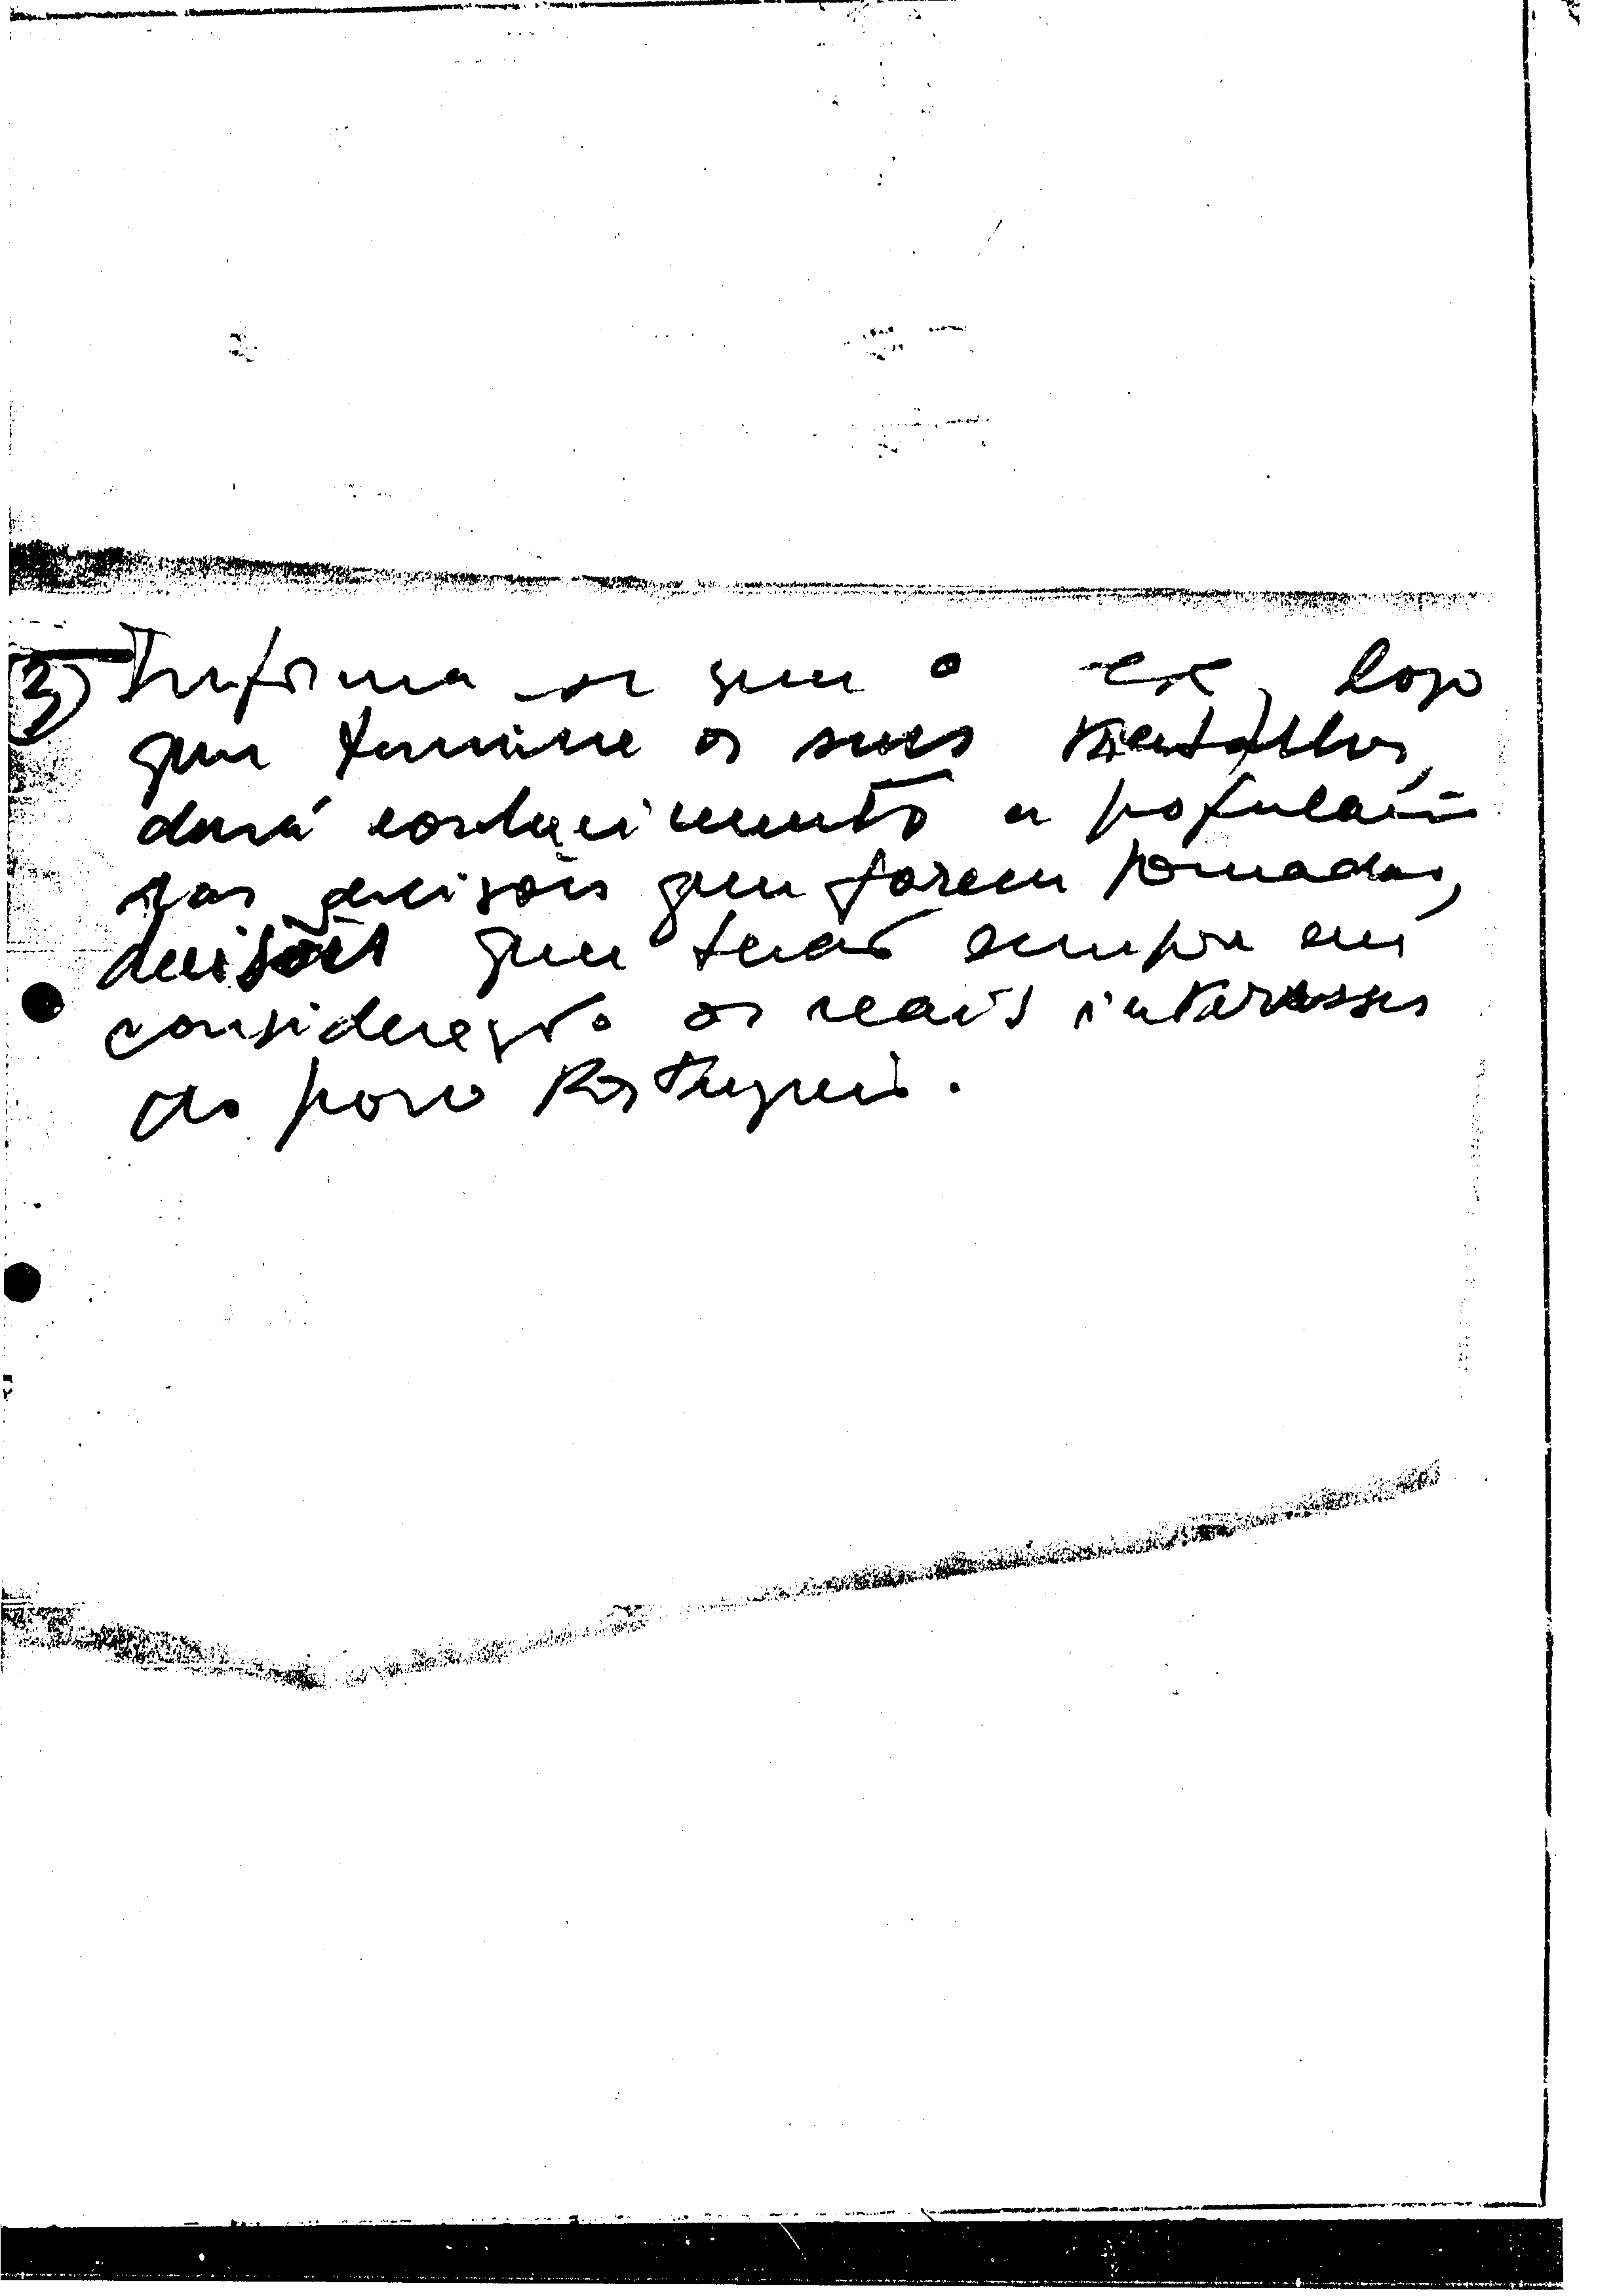 3) Informa-se que o CR, logo
que termine os seus trabalhos,
dará conhecimento à população
das decisões que forem tomadas,
decisões que terão sempre em
consideração os reais interesses
do povo Português.